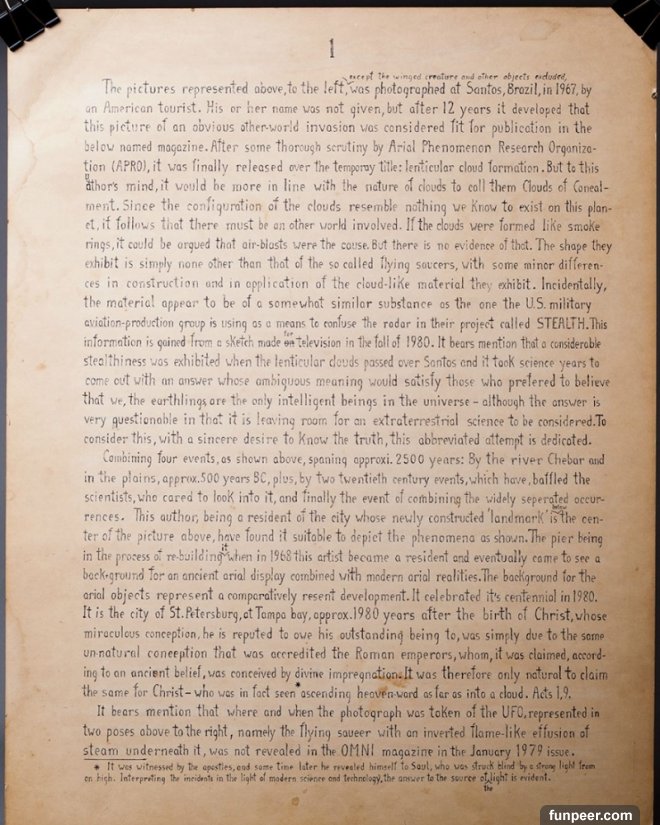 1
except the winged creature and other objects excluded,
The pictures represented above, to the left, was photographed at Santos, Brazil, in 1967, by
an American tourist. His or her name was not given, but after 12 years it developed that
this picture of an obvious other-world invasion was considered fit for publication in the
below named magazine. After some thorough scrutiny by Arial Phenomenon Research Organiza-
tion (APRO), it was finally released over the temporay title: lenticular cloud formation. But to this
u
athor's mind, it would be more in line with the nature of clouds to call them Clouds of Conceal-
ment. Since the configuration of the clouds resemble nothing we know to exist on this plan-
et, it follows that there must be an other world involved. If the clouds were formed like smoke
rings, it could be argued that air-blasts were the cause. But there is no evidence of that. The shape they
exhibit is simply none other than that of the so called flying saucers, with some minor differen-
ces in construction and in application of the cloud-like material they exhibit. Incidentally,
the material appear to be of a somewhat similar substance as the one the U.S. military
aviation-production group is using as a means to confuse the radar in their project called STEALTH. This
for
information is gained from a sketch made on television in the fall of 1980. It bears mention that a considerable
stealthiness was exhibited when the lenticular clouds passed over Santos and it took science years to
come out with an answer whose ambiguous meaning would satisfy those who prefered to believe
that we, the earthlings, are the only intelligent beings in the universe - although the answer is
very questionable in that it is leaving room for an extraterrestrial science to be considered. To
consider this, with a sincere desire to know the truth, this abbreviated attempt is dedicated.
Combining four events, as shown above, spaning approxi. 2500 years: By the river Chebar and
in the plains, approx. 500 years BC, plus, by two twentieth century events, which have, baffled the
scientists, who cared to look into it, and finally the event of combining the widely seperated occur-
below
rences. This author, being a resident of the city whose newly constructed 'landmark' is the cen-
ter of the picture above, have found it suitable to depict the phenomena as shown. The pier being
it
in the process of re-building when in 1968 this artist became a resident and eventually came to see a
back-ground for an ancient arial display combined with modern arial realities. The background for the
arial objects represent a comparatively resent development. It celebrated it's centennial in 1980.
It is the city of St. Petersburg, at Tampa bay, approx. 1980 years after the birth of Christ, whose
miraculous conception, he is reputed to owe his outstanding being to, was simply due to the same
un-natural conception that was accredited the Roman emperors, whom, it was claimed, accord-
ing to an ancient belief, was conceived by divine impregnation. It was therefore only natural to claim
the same for Christ - who was in fact seen *ascending heaven-ward as far as into a cloud. Acts 1,9.
It bears mention that where and when the photograph was taken of the UFO, represented in
two poses above to the right, namely the flying sauser with an inverted flame-like effusion of
steam underneath it, was not revealed in the OMNI magazine in the January 1979 issue.
* It was witnessed by the apostles, and some time later he revealed himself to Saul, who was struck blind by a strong light from
on high. Interpreting the incidents in the light of modern science and technology, the answer to the source of light is evident.
the
funpeer.com